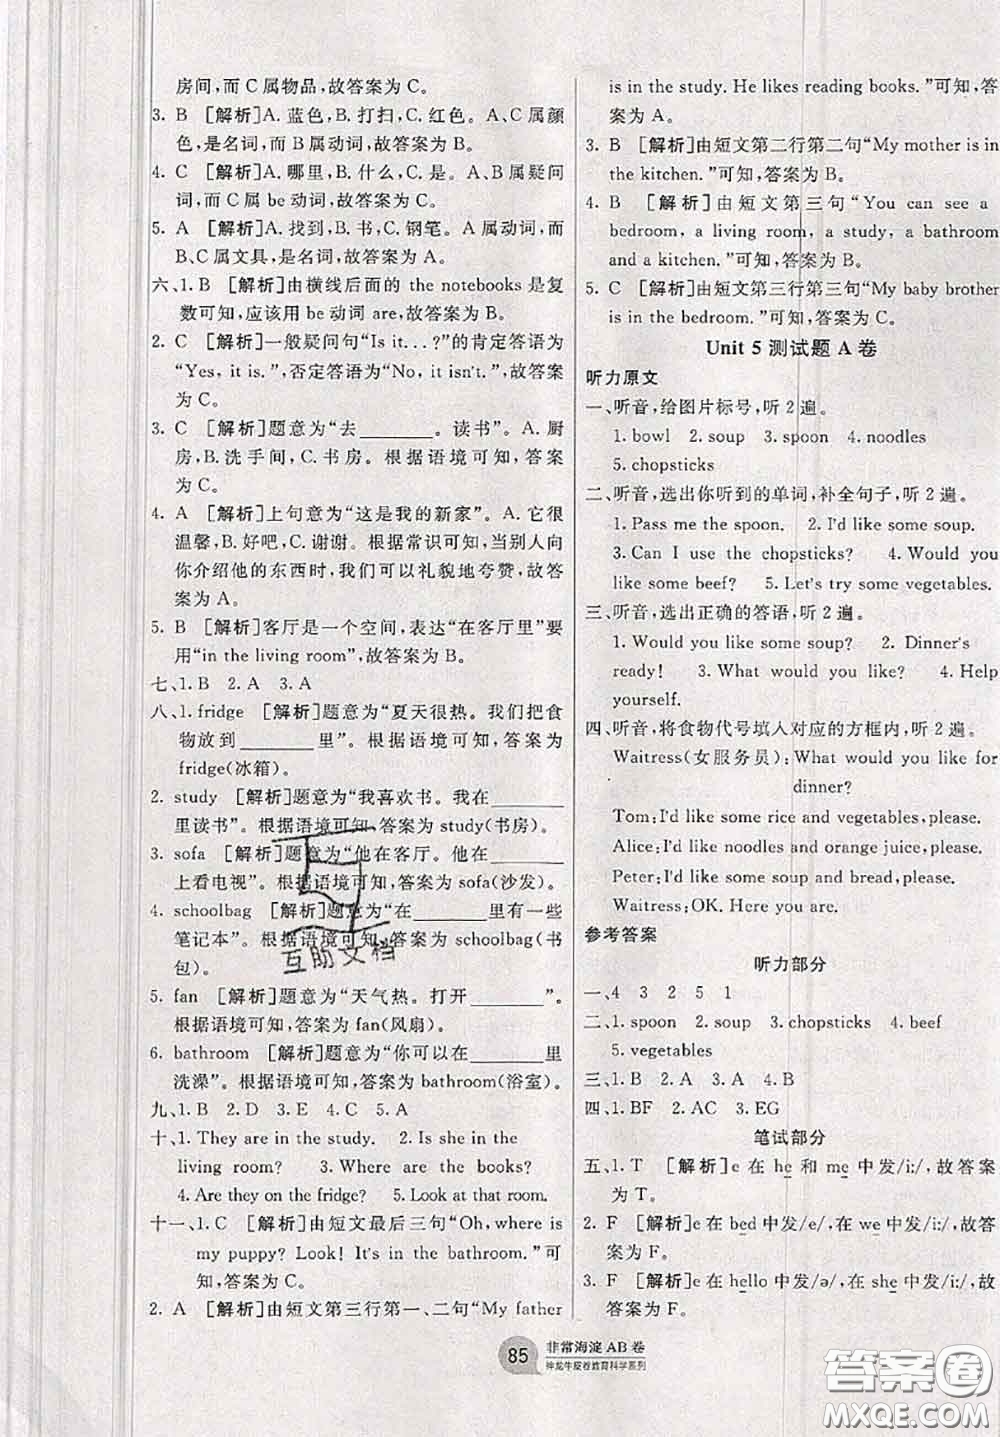 房间,而 C 属物品,故答案为 C。
3. B [解析]A. 蓝色,B. 打扫,C. 红色。A、C属颜
色,是名词,而 B 属动词,故答案为 B。
4. C [解析]A. 哪里,B. 什么,C. 是。A、B 属疑问
词,而 C 属 be 动词,故答案为 C。
5. A [解析]A. 找到,B. 书,C. 钢笔。A 属动词,
B、C 属文具,是名词,故答案为 A。
六、1. B [解析]由横线后面的 the notebooks 是复
数可知,应该用 be 动词 are,故答案为 B。
2. C [解析]一般疑问句“Is it...?”的肯定答语为
“Yes, it is.”,否定答语为“No, it isn't.”,故答案
为 C。
3. C [解析]题意为“去______。读书”。A. 厨
房,B. 洗手间,C. 书房。根据语境可知,答案
为 C。
4. A [解析]上句意为“这是我的新家”。A. 它很
温馨,B. 好吧,C. 谢谢。根据常识可知,当别人向
你介绍他的东西时,我们可以礼貌地夸赞,故答
案为 A。
5. B [解析]客厅是一个空间,表达“在客厅里”要
用“in the living room”,故答案为 B。
七、1. B 2. A 3. A
八、1. fridge [解析]题意为“夏天很热。我们把食
物放到______里”。根据语境可知,答案为
fridge(冰箱)。
2. study [解析]题意为“我喜欢书。我在______
里读书”。根据语境可知,答案为 study(书房)。
3. sofa [解析]题意为“他在客厅。他在______
上看电视”。根据语境可知,答案为 sofa(沙发)。
4. schoolbag [解析]题意为“在______里有一些
笔记本”。根据语境可知,答案为 schoolbag(书
包)。
5. fan [解析]题意为“天气热。打开______”。
根据语境可知,答案为 fan(风扇)。
6. bathroom [解析]题意为“你可以在______里
洗澡”。根据语境可知,答案为 bathroom(浴室)。
九、1. B 2. D 3. E 4. C 5. A
十、1. They are in the study. 2. Is she in the
living room? 3. Where are the books?
4. Are they on the fridge? 5. Look at that room.
十一、1. C [解析]由短文最后三句“Oh, where is
my puppy? Look! It's in the bathroom.”可
知,答案为 C。
2. A [解析]由短文第三行第一、二句“My father
is in the study. He likes reading books.”可知,答
案为 A。
3. B [解析]由短文第二行第二句“My mother is in
the kitchen.”可知,答案为 B。
4. B [解析]由短文第三句“You can see a
bedroom, a living room, a study, a bathroom
and a kitchen.”可知,答案为 B。
5. C [解析]由短文第三行第三句“My baby brother
is in the bedroom.”可知,答案为 C。
Unit 5 测试题 A 卷
听力原文
一、听音,给图片标号,听 2 遍。
1. bowl 2. soup 3. spoon 4. noodles
5. chopsticks
二、听音,选出你听到的单词,补全句子,听 2 遍。
1. Pass me the spoon. 2. I'd like some soup.
3. Can I use the chopsticks? 4. Would you
like some beef? 5. Let's try some vegetables.
三、听音,选出正确的答语,听 2 遍。
1. Would you like some soup? 2. Dinner's
ready! 3. What would you like? 4. Help
yourself.
四、听音,将食物代号填入对应的方框内,听 2 遍。
Waitress(女服务员):What would you like for
dinner?
Tom:I'd like some rice and vegetables, please.
Alice:I'd like noodles and orange juice, please.
Peter:I'd like some soup and bread, please.
Waitress:OK. Here you are.
参考答案
听力部分
一、4 3 2 5 1
二、1. spoon 2. soup 3. chopsticks 4. beef
5. vegetables
三、1. A 2. A 3. A 4. B
四、1. BF 2. AC 3. EG
笔试部分
五、1. T [解析]e 在 he 和 me 中发/iː/,故答案
为 T。
2. F [解析]e 在 bed 中发/e/,在 we 中发/iː/,故答
案为 F。
3. F [解析]e 在 hello 中发/ə/,在 she 中发/iː/,故
答案为 F。
互助文档
85
非常海淀 AB 卷
神龙牛皮卷教育科学系列
答案卷
MXQE.COM